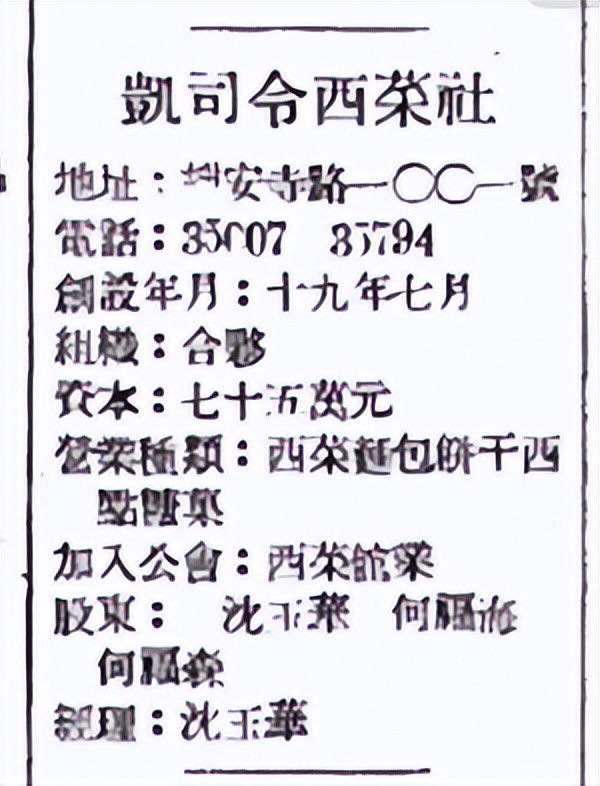 凱司令西菜社
地址：靜安寺路一〇〇一號
電話：
創設年月：十九年七月
組織：合夥
資本：七十五萬元
營業種類：西菜麵包餅干西
點
加入公會：西菜館業
股東：　沈玉華　何福
何福森
經理：沈玉華